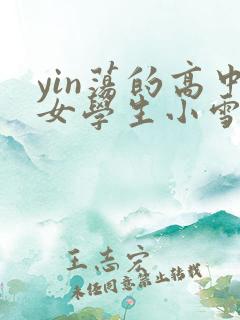 yin荡的高中
女學生小雪
王志宏
未经同意禁止转载